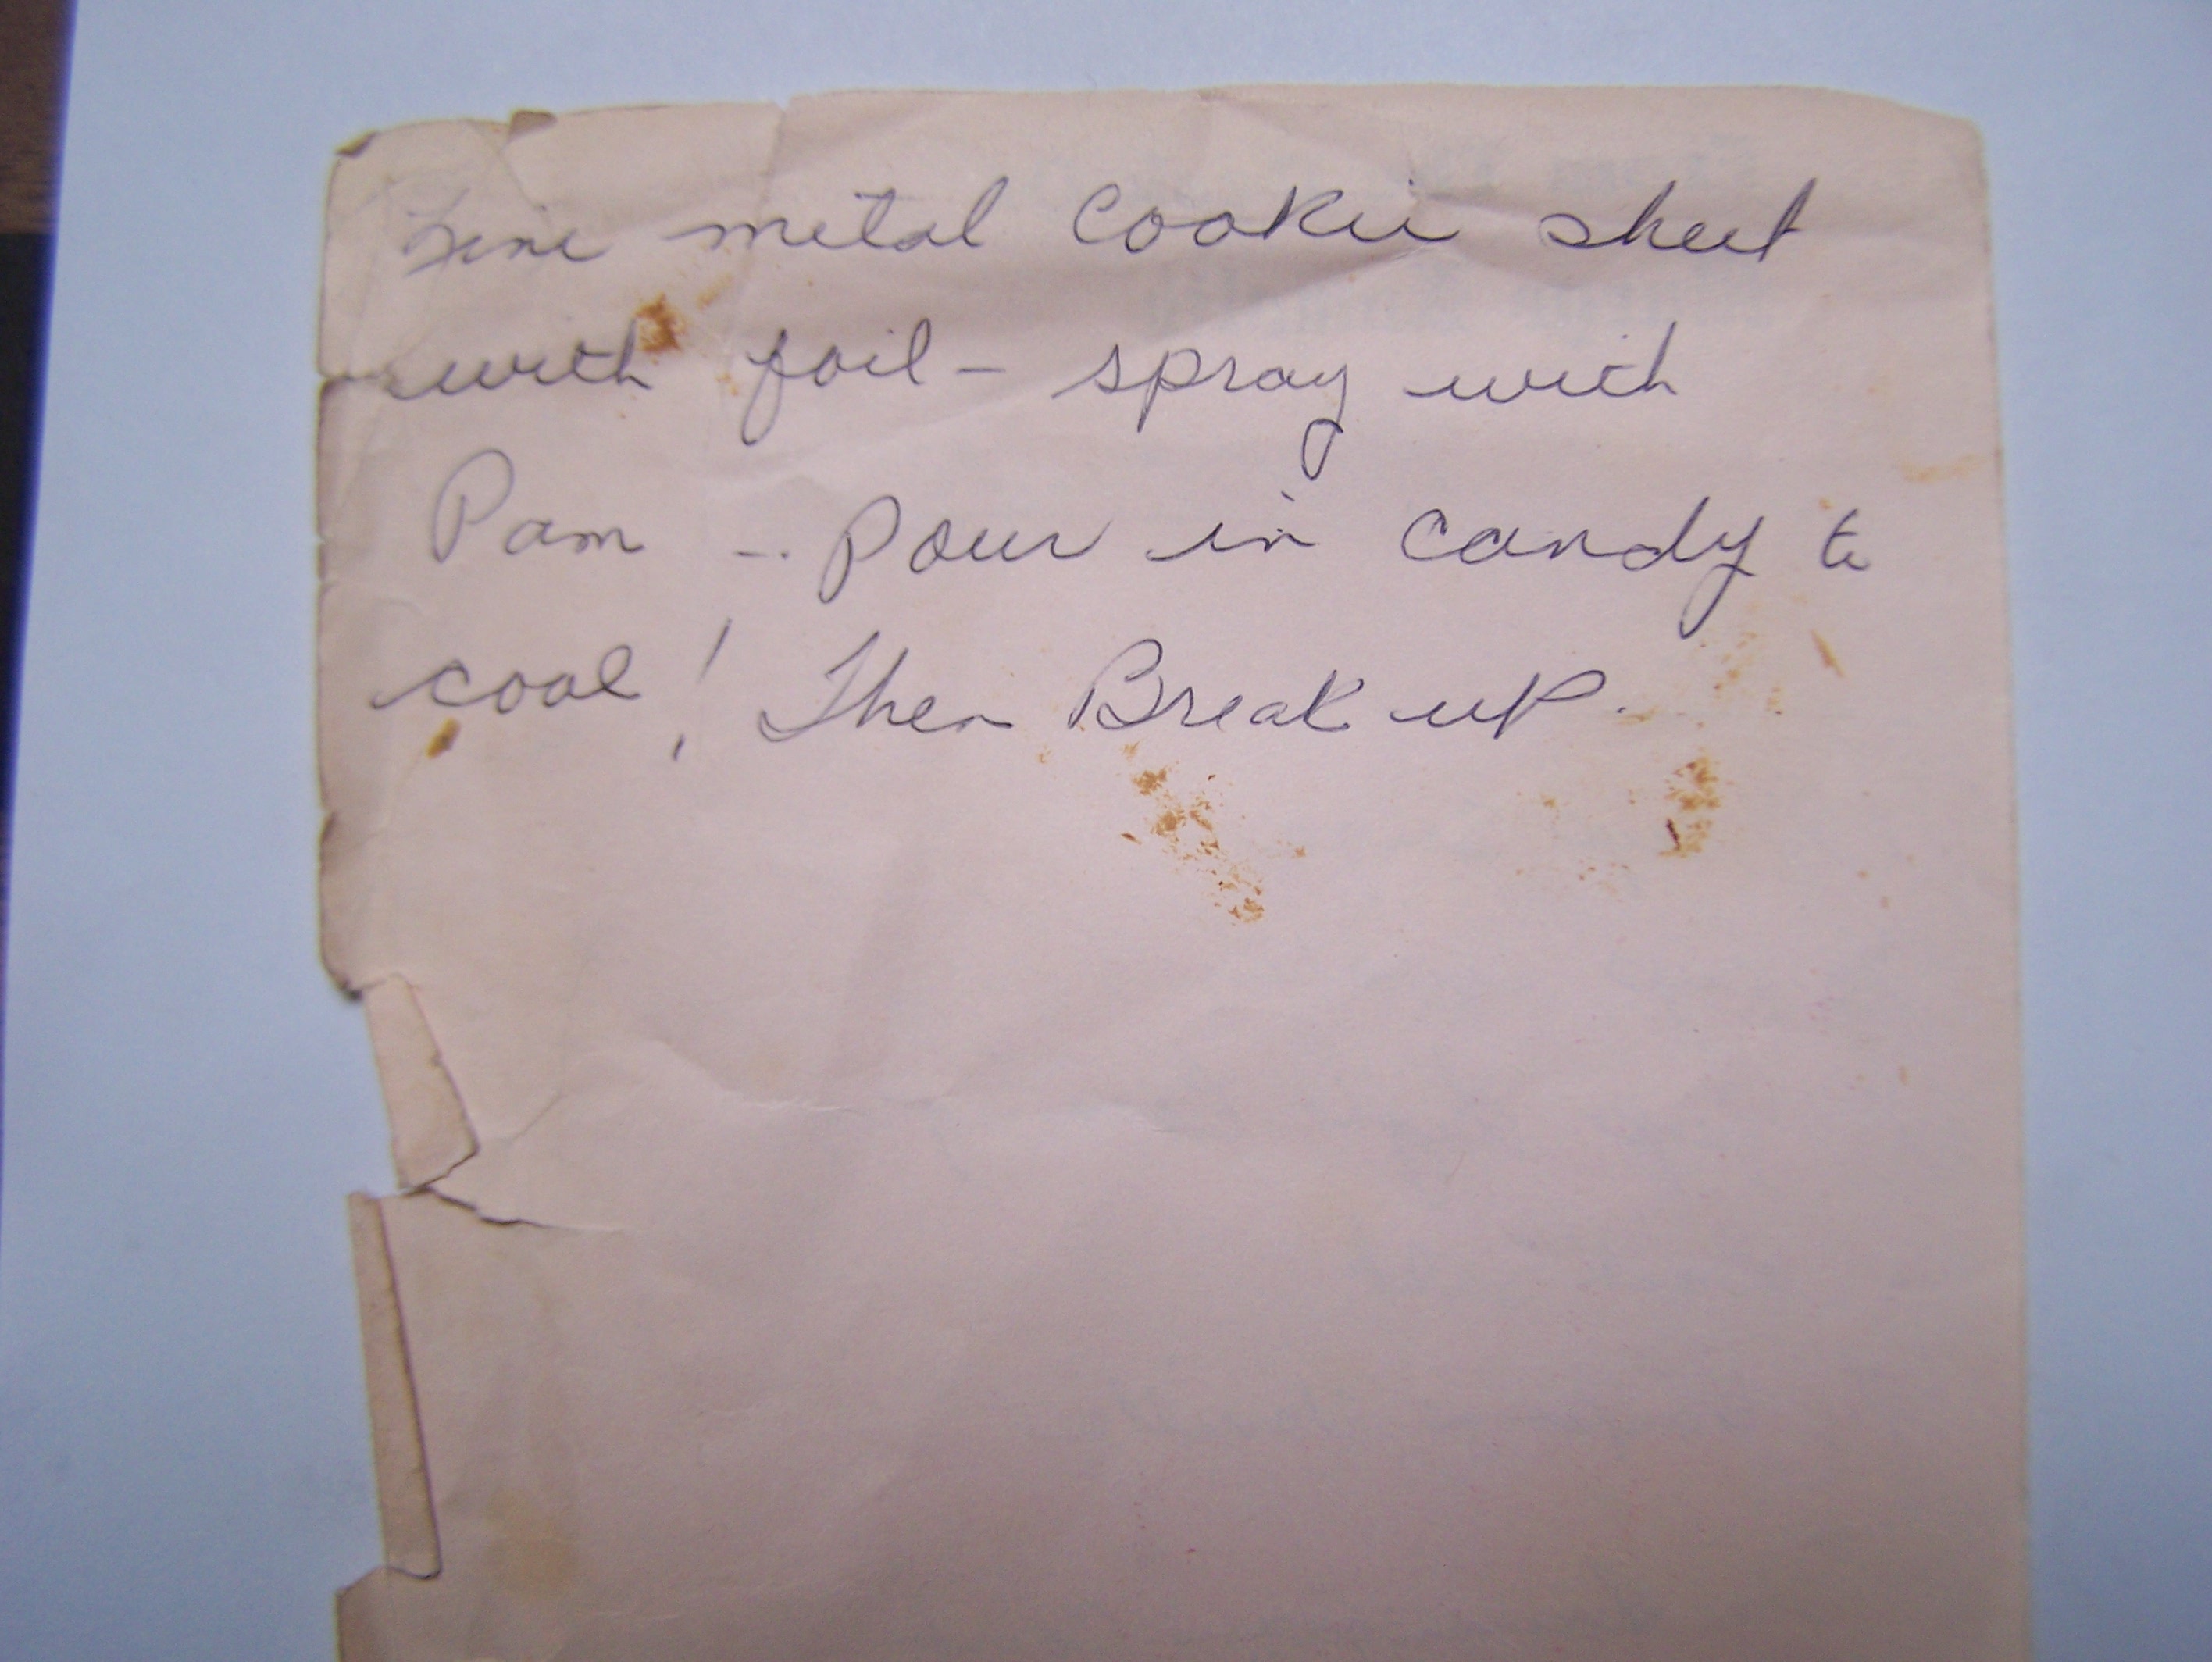 Line metal Cookie sheet
with foil - spray with
Pam - Pour in candy to
cool! Then Break up.